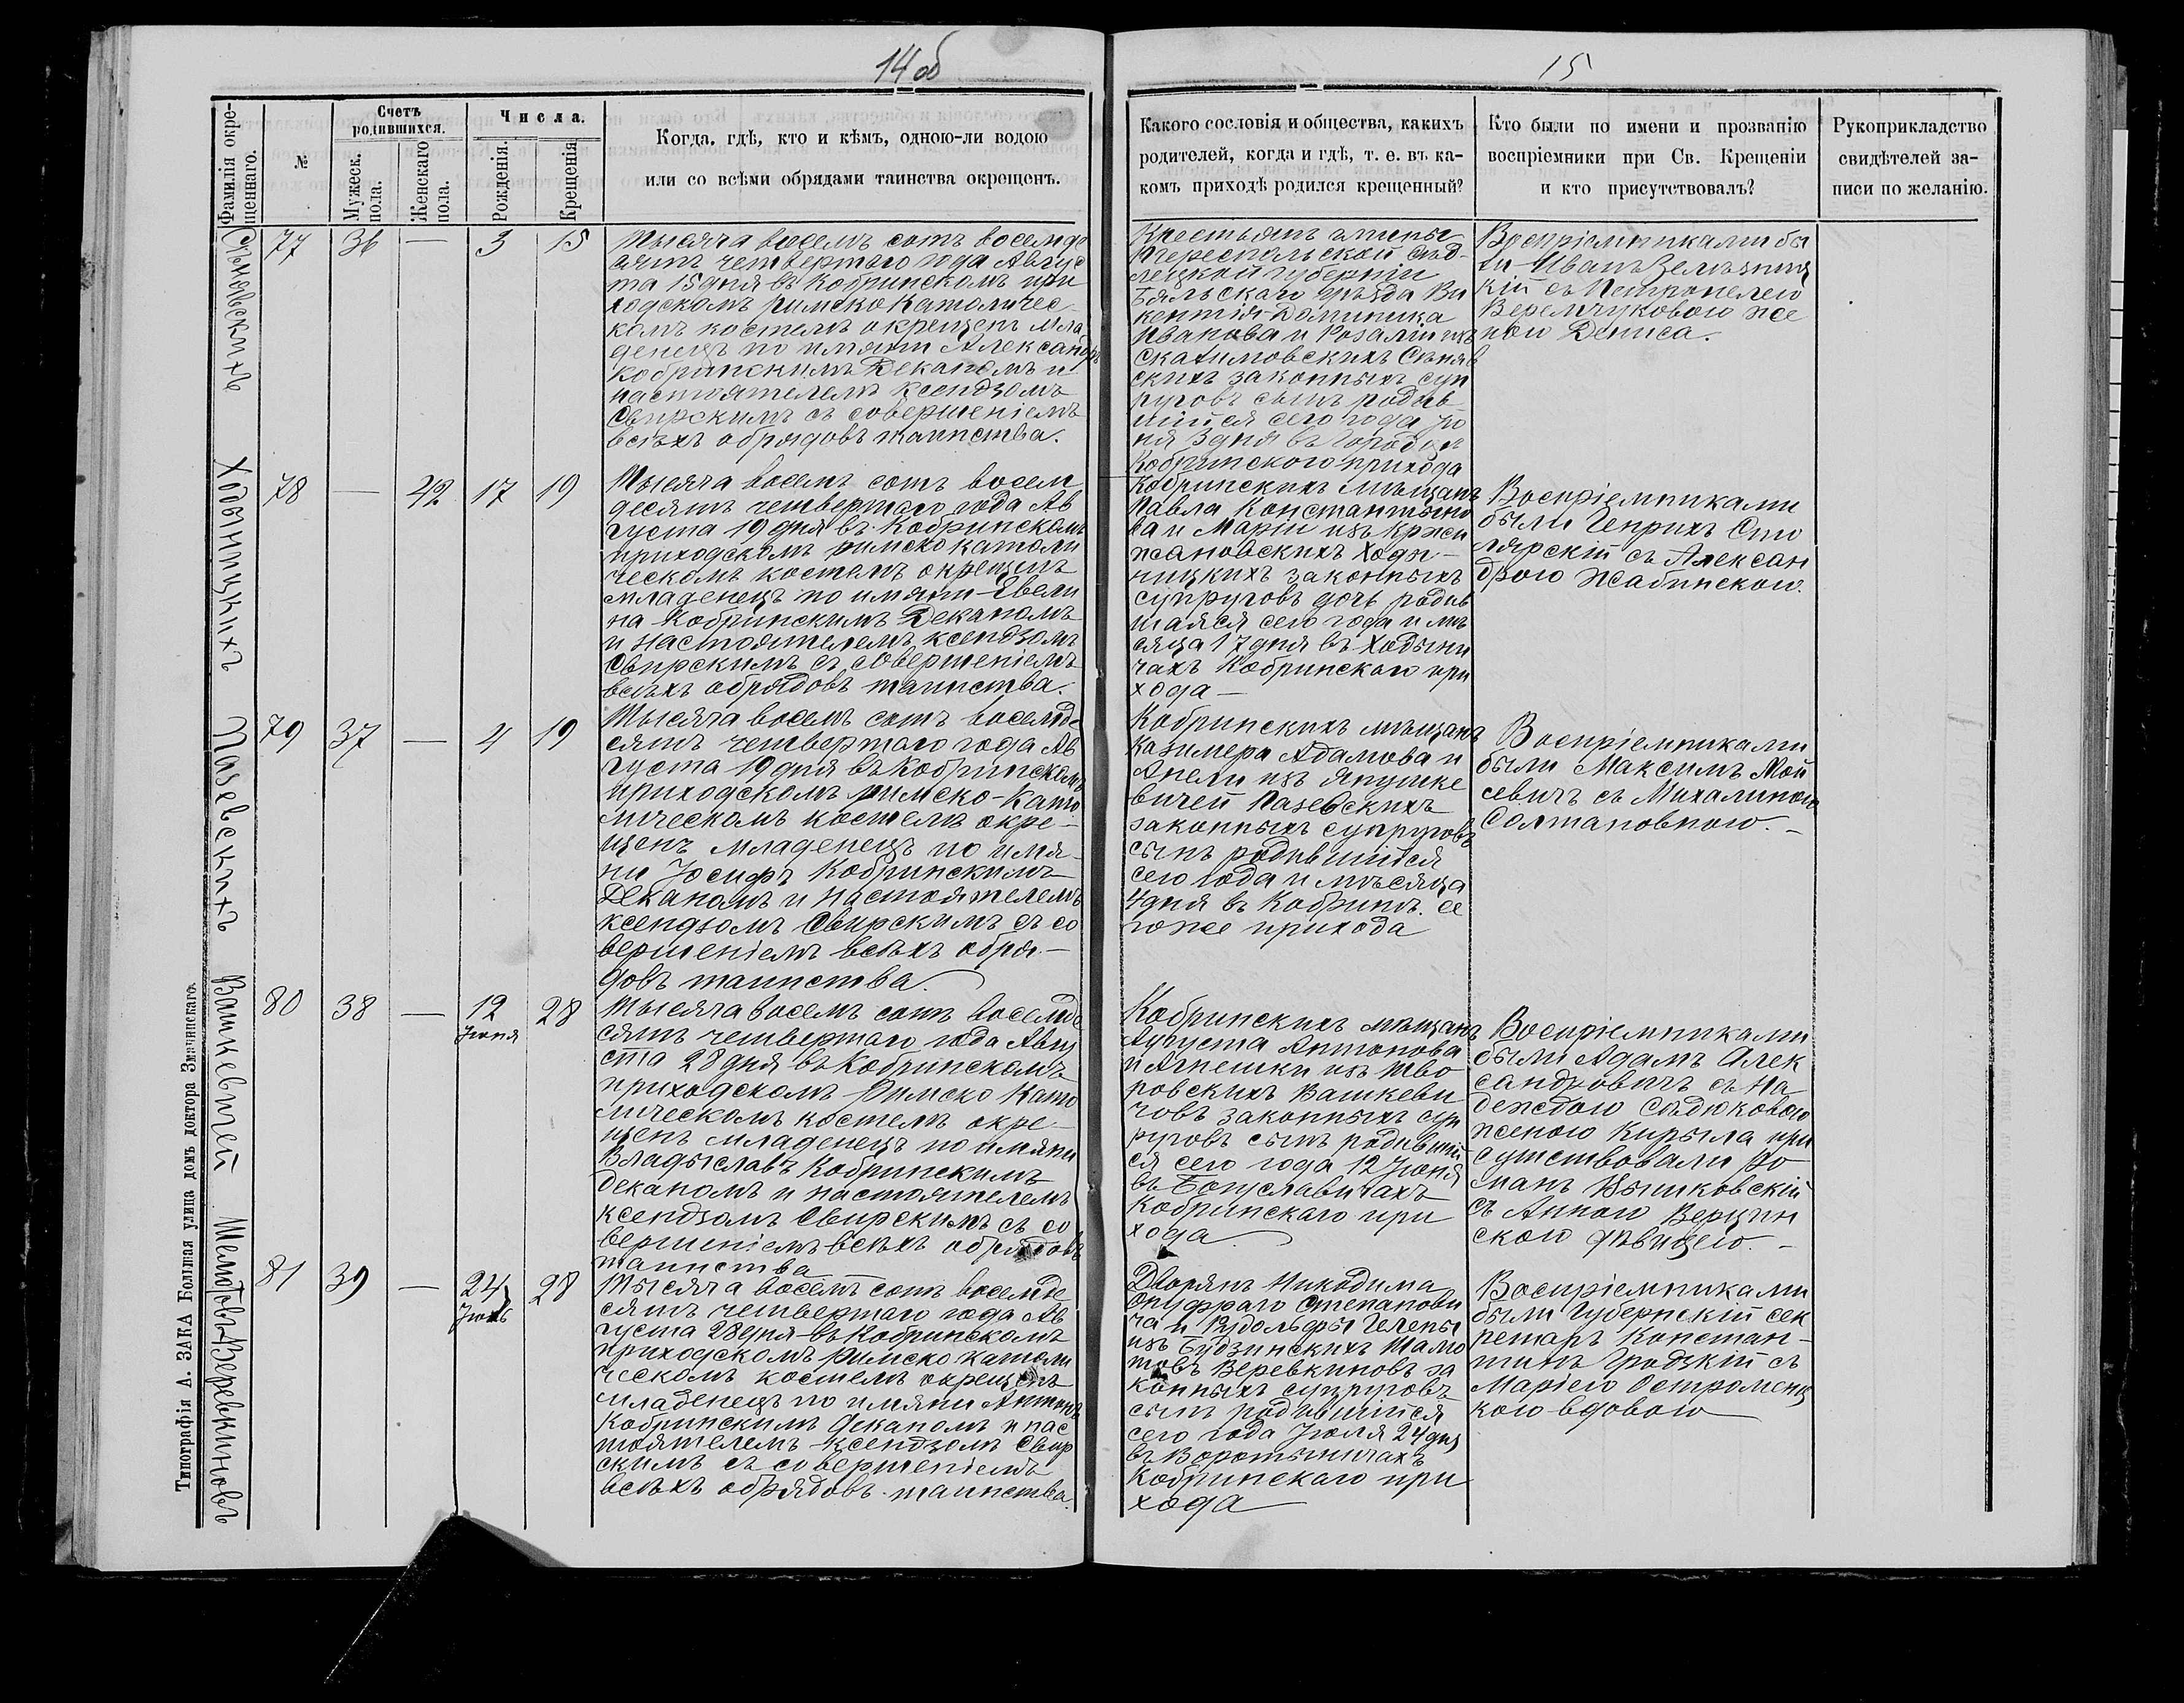 14об
Фамилія окре-
щеннаго.
№
Счетъ
родившихся.
Мужеск.
пола.
Женскаго
пола.
Числа.
Рожденія.
Крещенія
Когда, гдѣ, кто и кѣмъ, одною-ли водою
или со всѣми обрядами таинства окрещенъ.
77
36
—
3
15
Тысяча восемъ сотъ восемде
сятъ четвертаго года Авгус
та 15 дня въ Кобринскомъ при
ходскомъ римско Католичес
комъ костелѣ окрещенъ мла
денецъ по имяни Александръ
Кобринскимъ Деканомъ и
настоятелемъ Ксендзомъ
Свирскимъ съ совершеніемъ
всѣхъ обрядовъ таинства.
Ходыницкихъ
78
—
42
17
19
Тысяча восемъ сотъ восем
десятъ четвертаго года Ав
густа 19 дня въ Кобринскомъ
приходскомъ римско католи
ческомъ костелѣ окрещенъ
младенецъ по имяни Евели
на Кобринскимъ Деканомъ
и Настоятелемъ ксендзомъ
Свирскимъ съ совершеніемъ
всѣхъ обрядовъ таинства.
Пазевскихъ
79
37
—
4
19
Тысяча восемъ сотъ восемде
сятъ четвертаго года Ав
густа 19 дня въ Кобринскомъ
приходскомъ римско-Като
лическомъ костелѣ окре-
щенъ младенецъ по имя-
ни Іосифъ Кобринскимъ
Деканомъ и Настоятелемъ
ксендзомъ Свирскимъ съ со
вершеніемъ всѣхъ обря-
довъ таинства.
Вашкевичей
80
38
—
12
Іюня
28
Тысяча восемъ сотъ восемде
сятъ четвертаго года Авгу
ста 28 дня въ Кобринскомъ
приходскомъ Римско Като
лическомъ костелѣ окре-
щенъ младенецъ по имяни
Владыславъ Кобринскимъ
деканомъ и настоятелемъ
ксендзомъ Свирскимъ съ со
вершеніемъ всѣхъ обрядовъ
таинства
Веревкиновъ
81
39
—
24
28
Тысяча восемъ сотъ восемде
сятъ четвертаго года Ав
густа 28 дня въ Кобринскомъ
приходскомъ римско католи
ческомъ костелѣ окрещенъ
младенецъ по имяни Антонъ
Кобринскимъ деканомъ и нас
тоятелемъ ксендзомъ Свир
скимъ съ совершеніемъ
всѣхъ обрядовъ таинства.
Типографія А. ЗАКА Большая улица домъ доктора Змачинскаго.
15
Какого сословія и общества, какихъ
родителей, когда и гдѣ, т. е. въ ка-
комъ приходѣ родился крещенный?
Кто были по имени и прозванію
воспріемники при Св. Крещеніи
и кто присутствовалъ?
Рукоприкладство
свидѣтелей за-
писи по желанію.
Крестьянъ гмины
Сѣд-
лецкой губерніи
Бяльскаго уѣзда Ви
кентія Доминика
Иванова и Розаліи изъ
скихъ законныхъ суп
руговъ сынъ родив
шійся сего года Ію
ня 3 дня въ
Кобринского прихода
Воспріемниками бы
ли Иванъ
кій съ Петронелею
Веремчуковою же
ною Дениса.
Кобринскихъ мѣщанъ
Павла Константино
ва и Маріи изъ Кржи
жановскихъ Ходы-
ницкихъ законныхъ
супруговъ дочь родив
шаяся сего года и мѣ
сяца 17 дня въ Ходыни
чахъ Кобринскаго при
хода—
Воспріемниками
были Генрихъ Сто
лярскій съ Алексан
дрою Жабинскою.
Кобринскихъ мѣщанъ
Казимера Адамова и
Анели изъ Янушке
вичей Пазевскихъ
законныхъ супруговъ
сынъ родившійся
сего года и мѣсяца
4 дня въ Кобринѣ се
гоже прихода
Воспріемниками
были Максимъ Мой
севичъ съ Михалиною
Солтановною.—
Кобринскихъ мѣщанъ
Августа Антонова
и Агнешки изъ Тво
ровскихъ Вашкеви
човъ законныхъ суп
руговъ сынъ родившій
ся сего года 12 Іюня
въ Богуславичахъ
Кобринскаго при
хода
Воспріемниками
были Адамъ Алек
сандровичъ съ На
деждою Сѣдюковою
женою Кирыла при
сутствовали Ро
манъ Вышковскій
съ Анною Верцин
скою дѣвицею.—
Дворянъ Никодима
Онуфраго Степанови
ча и Рудольфы Гелены
изъ Будзинскихъ Шамо
товъ Веревкиновъ за
конныхъ супруговъ
сынъ родившійся
сего года Іюля 24 дня
въ Воротыничахъ
Кобринскаго при
хода
Воспріемниками
были Губернскій сек
ретарь Констан-
тинъ Гродзкій съ
Маріею Остроменц
кою вдовою